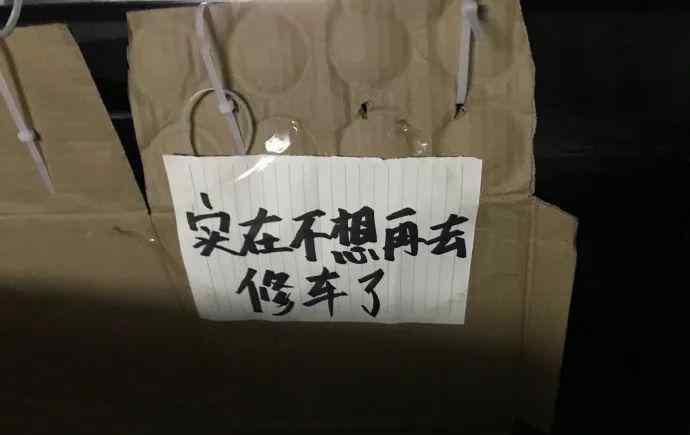 实在不想再去
修车了